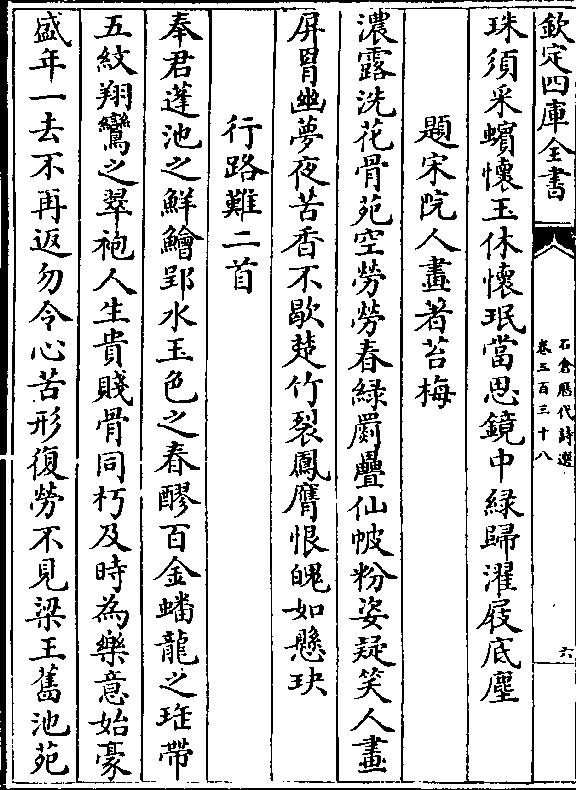 欽定四庫全書
石倉歷代詩選
卷三百三十八
六
珠須采蠙懷玉休懷珉當思鏡中緑歸濯屐底塵
題宋院人畫著苔梅
濃露洗花骨苑空勞勞春緑罽疊仙帔粉姿疑笑人畫
屏買幽夢夜苦香不歇楚竹裂鳳膺恨魄如懸玦
行路難二首
奉君蓬池之鮮鱠郢水玉色之春醪百金蟠龍之㻏帶
五紋翔鸞之翠袍人生貴賤骨同朽及時為樂意始豪
盛年一去不再返勿令心苦形復勞不見梁王舊池苑